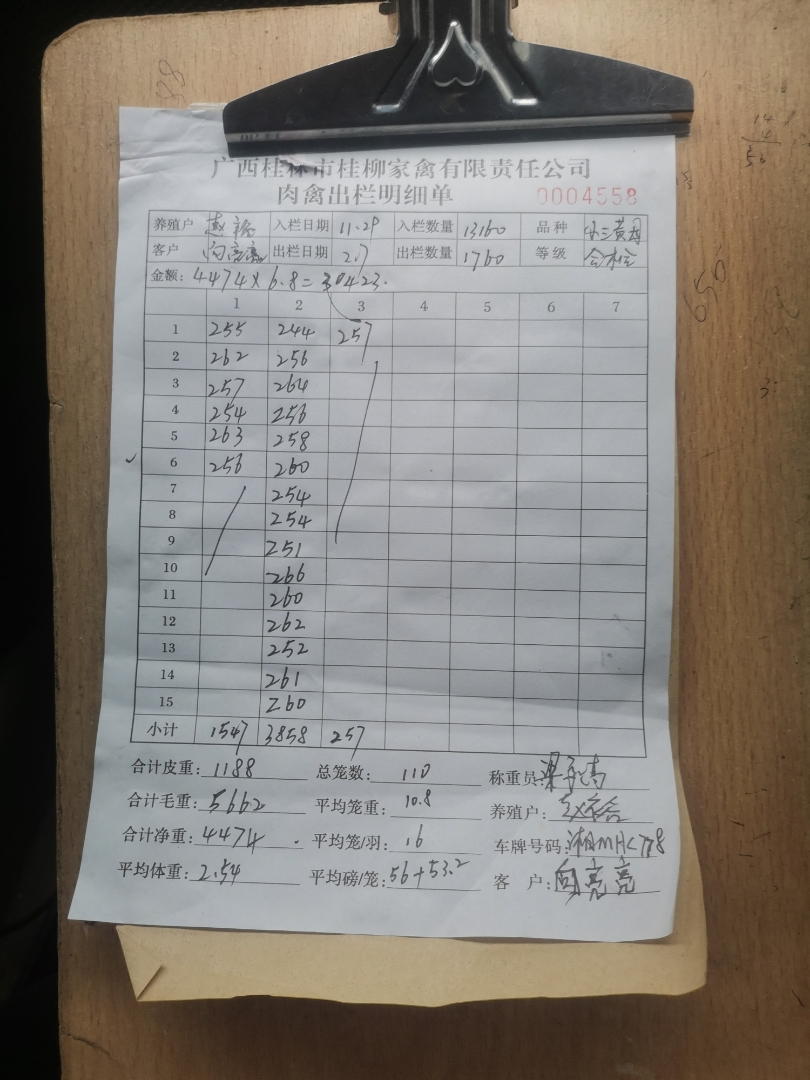 广西桂林市桂柳家禽有限责任公司
肉禽出栏明细单 0004558
养殖户 赵 入栏日期 11.29 入栏数量 13160 品种
客户 向亮亮 出栏日期 2.7 出栏数量 1760 等级 合格
金额: 4474×6.8=30423.
1 2 3 4 5 6 7
1 255 244 257
2 262 256
3 257 264
4 254 256
5 263 258
6 256 260
7 254
8 254
9 251
10 266
11 260
12 262
13 252
14 261
15 260
小计 1547 3858 257
合计皮重: 1188 总笼数: 110 称重员:
合计毛重: 5662 平均笼重: 10.8 养殖户:
合计净重: 4474 平均笼/羽: 16 车牌号码: 湘MHC778
平均体重: 2.54 平均磅/笼: 56+53.2 客 户: 向亮亮
14
4
56
650